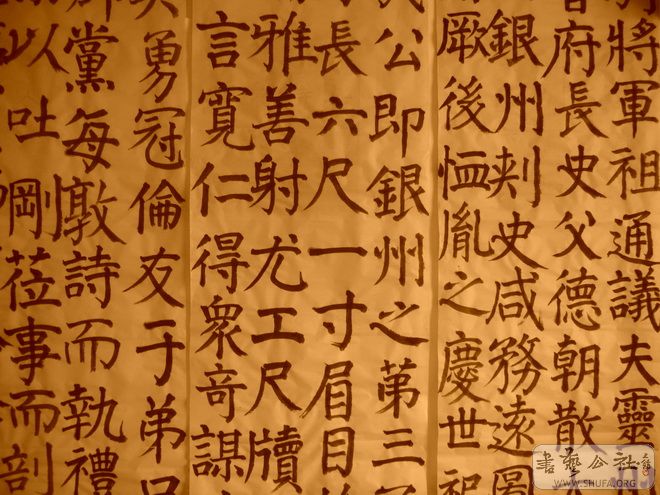 將軍祖通議夫靈
府長史父德朝散
銀州刾史咸務遠圖
厥後恤胤之慶世祀
公即銀州之第三
長六尺一寸眉目
雅善射尤工尺牘
言寬仁得眾奇謀
勇冠倫友于弟兄
黨每敦詩而執禮
以吐剛莅事而剖
書藝公社
WWW.SHUFA.ORG